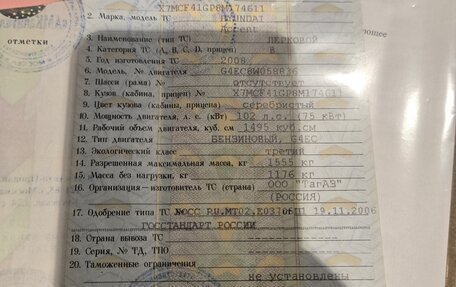 X7MCF41GP8M174611
отметки
2. Марка, модель ТС HYUNDAI
Accent
3. Наименование (тип ТС) ЛЕГКОВОЙ
4. Категория ТС (A, B, C, D, прицеп) B
5. Год изготовления ТС 2008
6. Модель, № двигателя G4EC8W058836
7. Шасси (рама) № отсутствует
8. Кузов (кабина, прицеп) № X7MCF41GP8M174611
9. Цвет кузова (кабины, прицепа) серебристый
10. Мощность двигателя, л. с. (кВт) 102 л.с. (75 кВт)
11. Рабочий объем двигателя, куб. см 1495 куб.см
12. Тип двигателя БЕНЗИНОВЫЙ, G4EC
13. Экологический класс третий
14. Разрешенная максимальная масса, кг 1555 кг
15. Масса без нагрузки, кг 1176 кг
16. Организация—изготовитель ТС (страна) ООО "ТагАЗ"
(РОССИЯ)
17. Одобрение типа ТС № РОСС RU.МТ02.Е03706П1 от 19.11.2006
ГОССТАНДАРТ РОССИИ
18. Страна вывоза ТС
19. Серия, № ТД, ТПО
20. Таможенные ограничения
не установлены